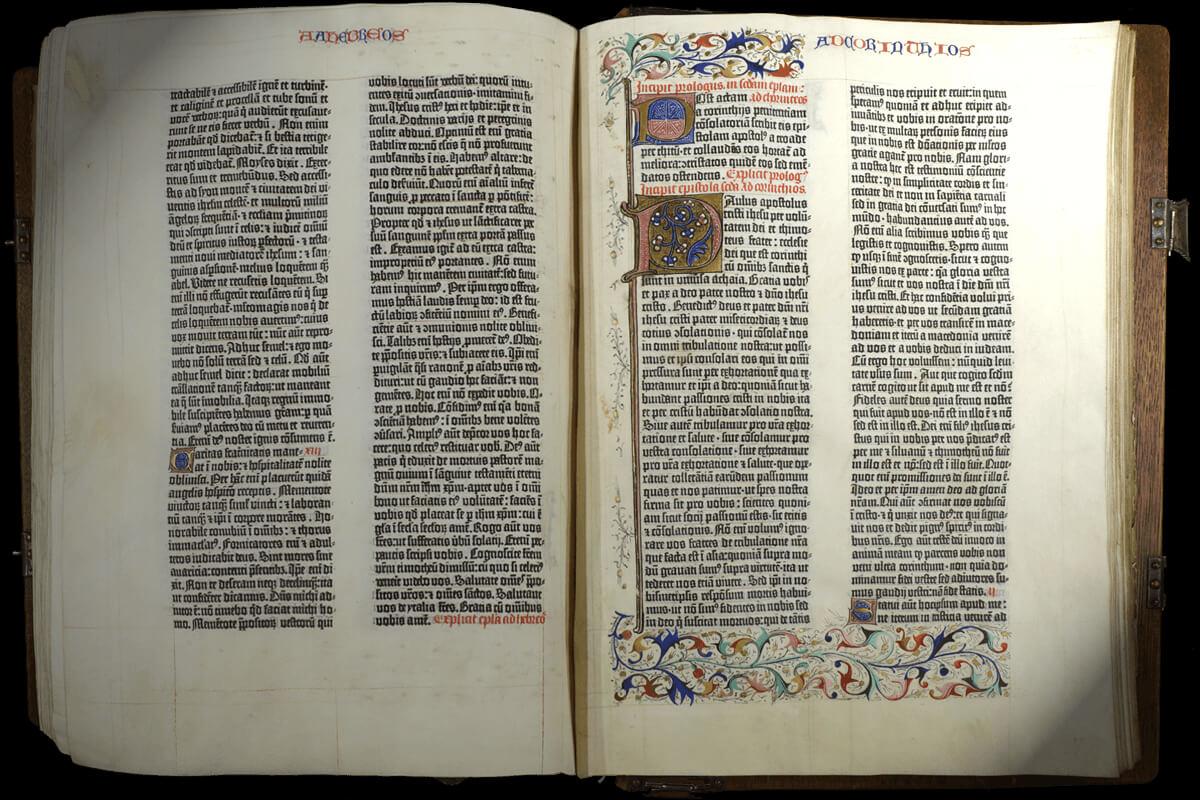 AD HEBREOS
tractabilē ⁊ accessibilē ignē et turbinē·
et caliginē et procellā et tube sonū et
runt ne eis fieret verbū. Non enim
portabāt qd dicebat: ⁊ si bestia tetige-
rit montem lapidabit. Et ita terribile
erat qd videbat. Moyses dixit. Exter-
ritus sum et tremebūdus. Sed accessi-
stis ad syon montē ⁊ civitatem dei vi-
ventis iherusalē celestē· et multorū miliū
angeloȝ frequentiā· ⁊ ecclesiam primitivoȝ
qui ascripti sunt ī celis: ⁊ iudicē omniū
deū· et spiritus iustoȝ pfectorū· ⁊ testa-
menti novi mediatorē ihesum: ⁊ san-
guinis aspsionē· melius loquentem q
abel. Videte ne recusetis loquentē. Si
terrā loquebat· multomagis nos q de
celis loquentem nobis avertim9: cuius
vox movit terram tūc: nūc autē repro-
mittit dicens. Adhuc semel: ⁊ ego mo-
vebo nō solū terrā sed ⁊ celū. Qd autē
adhuc semel dicit: declarat mobiliū
translationē tanq factoȝ: ut maneant
ea q sūt immobilia. Itaq regnū immo-
bile suscipiētes habemus gratiā: p quā
serviam9 placētes deo cū metu et reveren-
tia. Etenī deus noster ignis cōsumens ē.
Caritas fraternitatis mane- XIII
at ī nobis: ⁊ hospitalitatē nolite
oblivisci. Per hāc enī placuerūt quidā
angelis hospitio receptis. Mementote
vinctoȝ tanq simul vincti: ⁊ laboran-
tiū tanq ⁊ ipi ī corpore morātes. Ho-
norabile conubiū ī omnib9: ⁊ thorus
immaculat9. Fornicatores enī ⁊ adul-
teros iudicabit deus. Sint mores sine
avaricia: contenti pñtib9. Ipe enī di-
xit. Non te deseram neq derelinquā: ita
ut confidēter dicamus. Dñs michi ad-
iutor ē: nō timebo qd faciat michi ho-
mo. Mementote ppositoȝ vestrorū qui
vobis locuti sūt verbū dei: quorū intu-
entes exitū conversationis· imitamini fi-
dem. Ihesus cristus heri et hodie: ipe et in
secula. Doctrinis variis et peregrinis
nolite abduci. Optimū est enī gratia
stabilire cor: nō escis q nō profuerunt
ambulantib9 ī eis. Habem9 altare: de
quo edere nō habēt potestatē q taberna-
culo deserviūt. Quorū enī aīaliū infert
sanguis p peccato ī sancta p pōtificē:
horum corpora cremant extra castra.
Propter qd ⁊ ihesus ut sāctificaret per
suū sanguinē pplm extra portā passus
est. Exeamus igit ad eū extra castra:
improperiū ei9 portantes. Nō enim
habem9 hic manētem civitatē: sed futu-
ram inquirim9. Per ipm ergo offera-
mus hostiā laudis semp deo: id est fru-
ctū labioȝ cōfitentiū nomini ei9. Benefi-
cētie autē ⁊ cōmunionis nolite oblivi-
sci. Talib9 enī hostiis pmeret de9. Obedi-
te ppositis vris: ⁊ subiacete eis. Ipi enī
pvigilāt qsi rationē p aīab9 vris red-
dituri: ut cū gaudio hoc faciāt: ⁊ non
gementes. Hoc enī nō expedit vobis. O-
rate p nobis. Confidim9 enī qa bonā
cōscientiā habem9: ī omnib9 bene volētes
cōversari. Ampli9 autē depcor vos hoc fa-
cere: quo celeri9 restituar vob. De9 autē
pacis q eduxit de mortuis pastorē ma-
gnū ovium ī sanguine testamēti eterni
dñm nrm ihm xpm: aptet vos ī omī
bono ut faciatis ei9 volūtatē: faciēs ī
vobis qd placeat se p ihm xpm: cui ē
gloria ī secula seculoȝ amē. Rogo autē vos
frēs: ut sufferatis verbū solatii. Etenī per-
paucis scripsi vobis. Cognoscite frēm
nrm timotheū dimissū: cū quo si celeri9
venerit videbo vos. Salutate omēs ppo-
sitos vros: ⁊ omēs sanctos. Salutant
vos de ytalia frēs. Gratia cū omnibus
vobis amē. Explicit epla ad hebreos
AD CORINTHIOS
Incipit prologus in scdam eplam:
Post actam ad chorinteos
a corinthiis penitentiam
cōsolatoriā scribit eis epi-
stolam apostolus a troade
per thitū: et collaudās eos hortat ad
meliora: cōtristatos quidē eos sed emē-
datos ostendens. Explicit prolog9
Incipit epistola scda ad corinthios.
Paulus apostolus
cristi ihesu per volū-
tatem dei et thimo-
teus frater: ecclesie
dei que est corinthi
cū omnib9 sanctis q
sunt in omnia achaia. Gratia vobis
et pax a deo patre nostro ⁊ dño ihesu
cristo. Benedict9 deus et pater dñi nri
ihesu cristi pater misericordiaȝ ⁊ deus
totius cōsolationis· qui cōsolat nos
in omni tribulatione nostra: ut possi-
mus et ipsi consolari eos qui in omī
pressura sunt per exhortationem qua ex-
hortamur et ipi a deo: quoniā sicut ha-
bundant passiones cristi in nobis ita
et per cristū habūdat cōsolatio nostra.
Sive autē tribulamur pro vra exhor-
tatione et salute· sive cōsolamur pro
vestra consolatione· sive exhortamur
pro vra exhortatione ⁊ salute· que ope-
ratur tolerātiā earūdem passionum
quas et nos patimur· ut spes nostra
firma sit pro vobis: scientes quoni-
am sicut socii passionū estis· sic eritis
⁊ cōsolationis. Nō enī volum9 igno-
rare vos fratres de tribulatione nra
que facta est ī asia: quoniā supra mo-
dū gravati sum9 supra virtutē· ita ut
tederet nos etiā vivere. Sed ipi in no-
bismetipsis respōsum mortis habui-
mus· ut nō sim9 fidentes in nobis sed
in deo q suscitat mortuos: qui de tātis
periculis nos eripuit et eruit: in quem
speram9 quoniā et adhuc eripiet ad-
iuvantib9 et vobis in oratiōe pro no-
bis: ut ex multaȝ personis facieȝ eius
que in nobis est donationis per multos
gratie agant pro nobis. Nam glori-
a nostra hec est testimoniū cōscientie
nostre: q in simplicitate cordis et sin-
ceritate dei et non in sapiētia carnali
sed in gratia dei cōversati sum9 in hoc
mūdo· habundantius autē ad vos.
Nō enī alia scribimus vobis q que
legistis et cognovistis. Spero autem
q usq ī finē cognoscetis· sicut ⁊ cogno-
vistis nos ex parte: qa gloria vestra
sum9 sicut et vos nostra ī die dñi nri
ihesu cristi. Et hac confidētia volui pri-
us venire ad vos ut secūdam gratiā
haberetis· et per vos transire in mace-
doniam et iterū a macedonia venire
ad vos et a vobis deduci in iudeam.
Cū ergo hoc voluissem: nūquid levi-
tate usus sum. Aut que cogito scdm
carnē cogito· ut sit apud me est et nō?
Fidelis autē deus quia sermo noster
qui fuit apud vos· nō est in illo ē ⁊ nō
sed est in illo est. Dei enī fili9 ihesus cri-
stus qui in vobis per nos pdicat9 est
per me ⁊ silvanū ⁊ thimotheū nō fuit
in illo est et nō: sed est ī illo fuit. Quot-
quot enī promissiones dei sunt ī illo ē.
Ideo et per ipm amen deo ad gloriā
nram. Qui autē cōfirmat nos vobiscū
ī cristo ⁊ q unxit nos de9: et qui signa-
vit nos et dedit pign9 spirit9 in cordi-
bus nris. Ego autē testē deū invoco in
animā meam q parcens vobis non
veni ultra corinthum· non quia do-
minamur fidei vestre sed adiutores su-
mus gaudii vestri: nā fide statis. II
Statui autē hoc ipsum apud me:
ne iterum in tristicia venirē ad